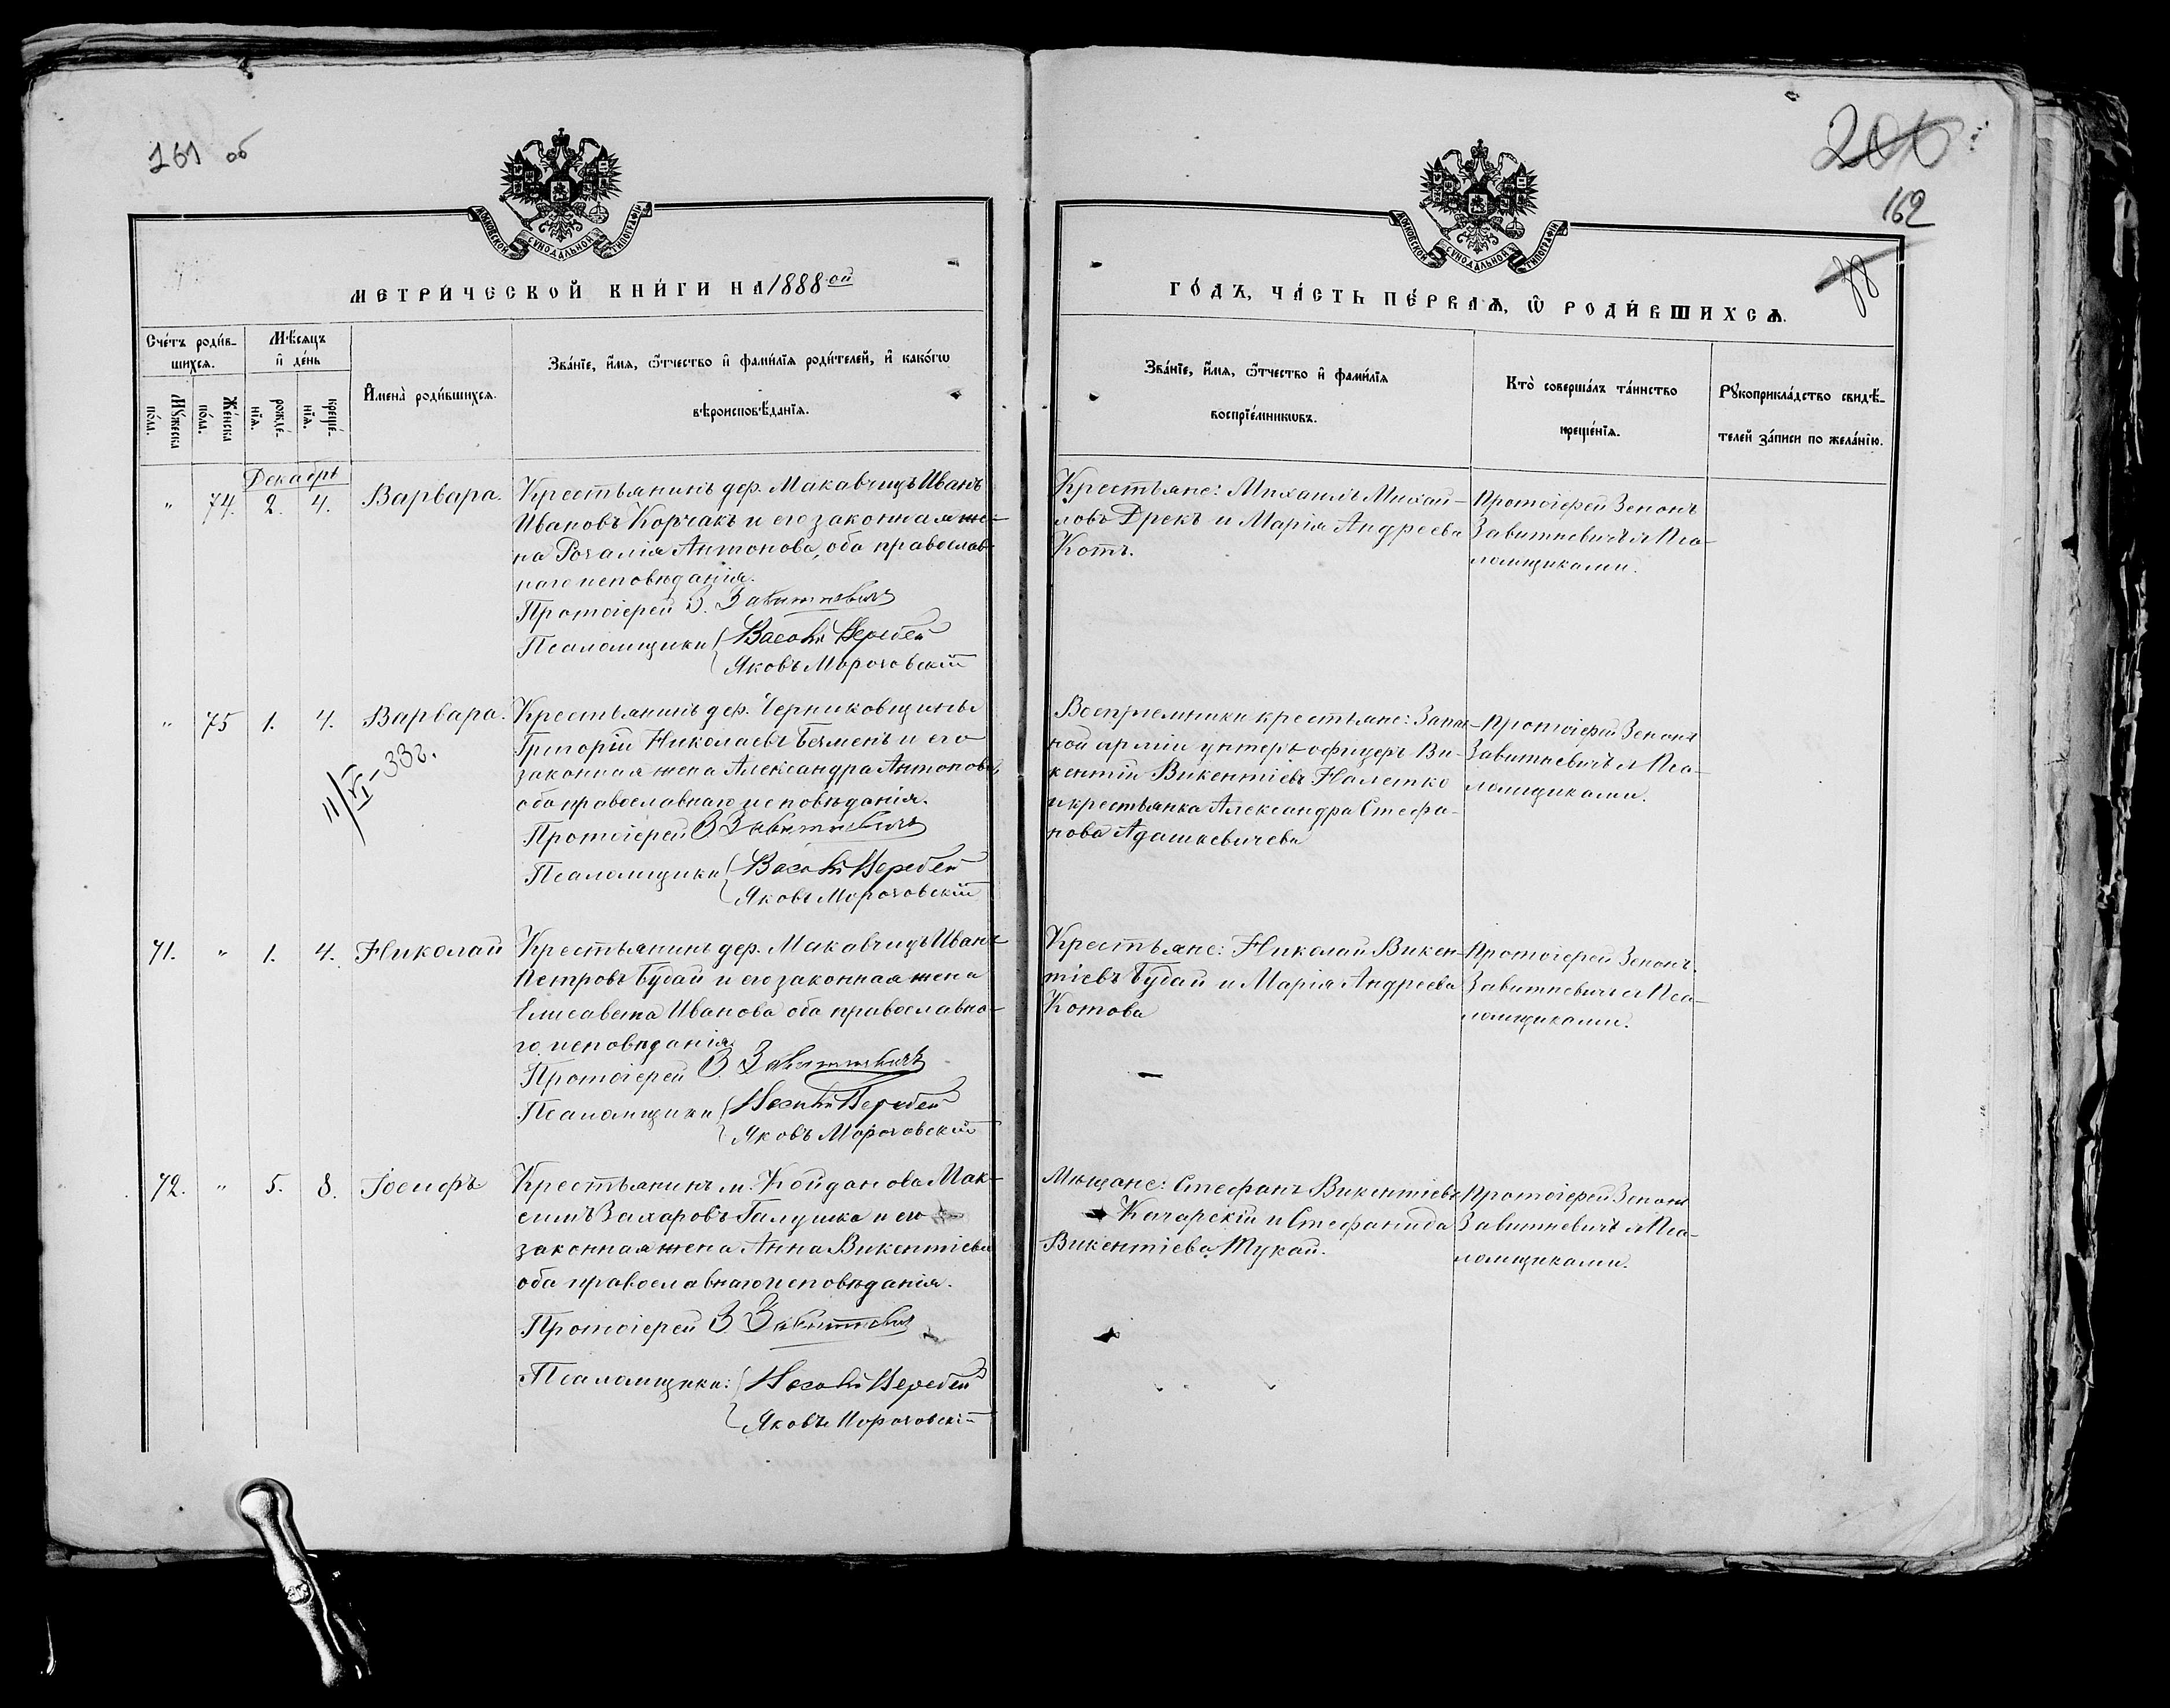 161 об
МОСКОВСКОЙ СУНОДАЛЬНОЙ ТИПОГРАФІИ
МЕТРИ́ЧЕСКОЙ КНИ́ГИ НА 1888 ой
Сче́тъ роди́в-
шихсѧ.
Мѣ́сѧцъ
и҆ де́нь
Мꙋ́жеска
по́ла.
Же́нска
по́ла.
рожде́-
нїѧ.
креще́-
нїѧ.
И҆мена̀ роди́вшихсѧ.
Зва́нїе, и҆́мѧ, ѻ҆́тчество и҆ фами́лїѧ роди́телей, и҆ како́гѡ
вѣроисповѣ́данїѧ.
Декабрь
" 74. 2. 4. Варвара.
Крестьянинъ дер. Макавчицъ Иванъ
Ивановъ Корчакъ и его законная же-
на Розалія Антонова, оба православ-
наго исповѣданія.
Протоіерей З. Завитневичъ
Псаломщики Яковъ Морозовскій
" 75 1. 4. Варвара.
11/VI-33г.
Крестьянинъ дер. Черниковщины
Григорій Николаевъ Бечменъ и его
законная жена Александра Антонова,
оба православнаго исповѣданія.
Протоіерей З Завитневичъ
Псаломщики Яковъ Морозовскій
71. " 1. 4. Николай
Крестьянинъ дер. Макавчицъ Иванъ
Петровъ Будай и его законная жена
Елисавета Иванова оба православна-
го исповѣданія.
Протоіерей З. Завитневичъ
Псаломщики Яковъ Морозовскій
72. " 5. 8. Іосифъ
Крестьянинъ м. Койданова Мак-
симъ Захаровъ Галушка и его
законная жена Анна Викентіева
оба православнаго исповѣданія.
Протоіерей З. Завитневичъ
Псаломщики: Яковъ Морозовскій
162
МОСКОВСКОЙ СУНОДАЛЬНОЙ ТИПОГРАФІИ
ГО́ДЪ, ЧА́СТЬ ПЕ́РВАѦ, Ѡ҆ РОДИ́ВШИХСѦ.
Зва́нїе, и҆́мѧ, ѻ҆́тчество и҆ фами́лїѧ
воспрїе́мникѡвъ.
Кто̀ соверша́лъ та́инство
креще́нїѧ.
Рꙋкоприкла́дство свидѣ́-
телей за́писи по жела́нїю.
Крестьяне: Михаилъ Михай-
ловъ Дрекъ и Марія Андреева
Котъ.
Протоіерей Зенонъ
Завитневичъ съ Пса-
ломщиками.
Воспріемники крестьяне: Запас-
ной арміи унтеръ-офицеръ Ви-
кентій Викентіевъ Налетко
и крестьянка Александра Стефа-
нова Адашкевичева
Протоіерей Зенонъ
Завитневичъ съ Пса-
ломщиками.
Крестьяне: Николай Викен-
тіевъ Будай и Марія Андреева
Котова
Протоіерей Зенонъ
Завитневичъ съ Пса-
ломщиками.
Мѣщане: Стефанъ Викентіевъ
Качарскій и Стефанида
Викентіева Тукай.
Протоіерей Зенонъ
Завитневичъ съ Пса-
ломщиками.